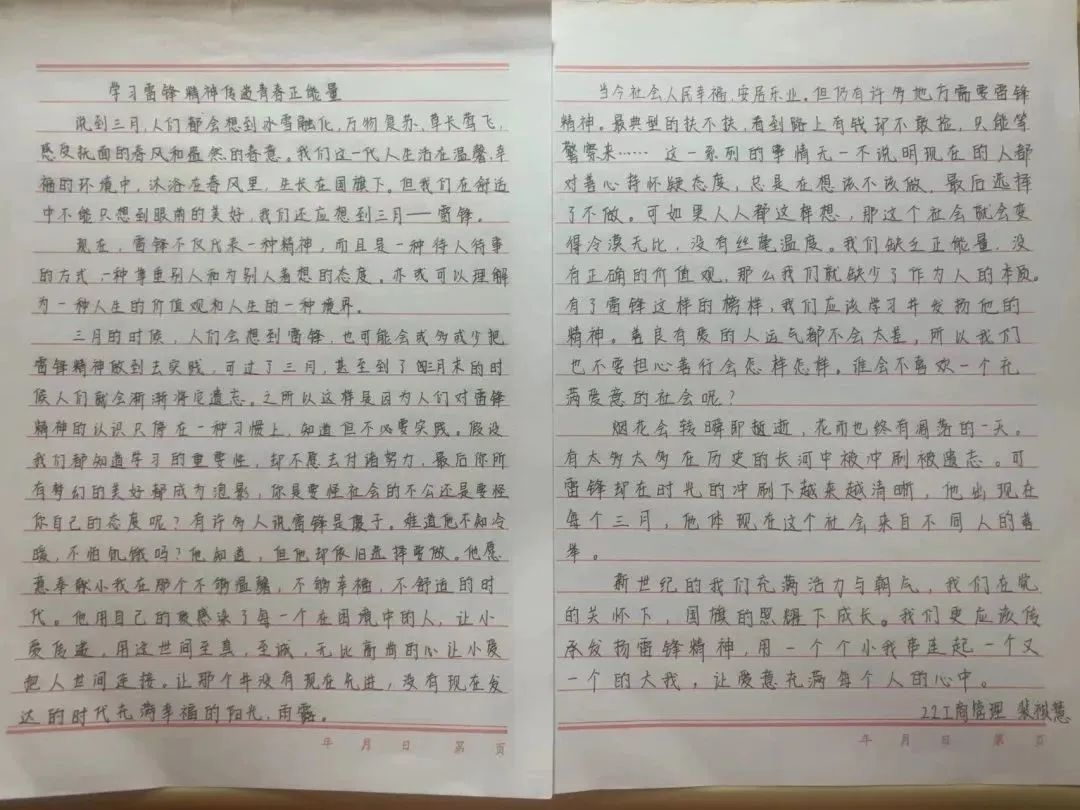 学习雷锋精神传递青春正能量
说到三月,人们都会想到冰雪融化,万物复苏、草长莺飞,
感受抚面的春风和盎然的春意。我们这一代人生活在温馨,幸
福的环境中,沐浴在春风里,生长在国旗下。但我们在舒适
中不能只想到眼前的美好,我们还应想到三月——雷锋。
现在,雷锋不仅代表一种精神,而且是一种待人待事
的方式,一种尊重别人和为别人着想的态度。亦或可以理解
为一种人生的价值观和人生的一种境界。
三月的时候,人们会想到雷锋,也可能会或多或少把
雷锋精神做到去实践,可过了三月,甚至到了三月末的时
候人们就会渐渐将它遗忘。之所以这样是因为人们对雷锋
精神的认识只停在一种习惯上,知道但不必要实践。假设
我们都知道学习的重要性,却不愿去付诸努力,最后你所
有梦幻的美好都成为泡影,你是要怪社会的不公还是要怪
你自己的态度呢?有许多人说雷锋是傻子。难道他不知冷
暖,不怕饥饿吗?他知道,但他却依旧选择要做。他愿
意奉献小我在那个不够温馨,不够幸福,不舒适的时
代。他用自己的爱感染了每一个在困境中的人,让小
爱传递,用这世间至真,至诚,无比高尚的心让小爱
把人世间连接。让那个并没有现在先进,没有现在发
达的时代充满幸福的阳光,雨露。
年 月 日 第 页
当今社会人民幸福,安居乐业。但仍有许多地方需要雷锋
精神。最典型的扶不扶,看到路上有钱却不敢捡,只能等
警察来…… 这一系列的事情无一不说明现在的人都
对善心持怀疑态度,总是在想该不该做,最后选择
了不做。可如果人人都这样想,那这个社会就会变
得冷漠无比,没有丝毫温度。我们缺乏正能量,没
有正确的价值观,那么我们就缺少了作为人的本质。
有了雷锋这样的榜样,我们应该学习并发扬他的
精神。善良有爱的人运气都不会太差,所以我们
也不要担心善行会怎样怎样。谁会不喜欢一个充
满爱意的社会呢?
烟花会转瞬即逝,花雨也终有凋落的一天。
有太多太多在历史的长河中被冲刷被遗忘。可
雷锋却在时光的冲刷下越来越清晰,他出现在
每个三月,他体现在这个社会来自不同人的善
举。
新世纪的我们充满活力与朝气,我们在党
的关怀下,国旗的照耀下成长。我们更应该传
承发扬雷锋精神,用一个个小我串连起一个又
一个的大我,让爱意充满每个人的心中。
22工商管理 慧
年 月 日 第 页